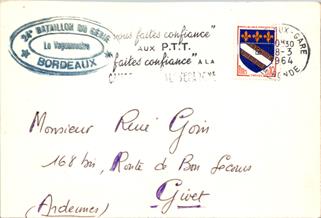 34e BATAILLON DU GÉNIE
Le Vaguemestre
BORDEAUX
"vous faites confiance"
AUX P.T.T.
"faites confiance" A LA
GARE
8-3
1964
Monsieur René Goin
168 bis, Route de Bon Secours
Givet
(Ardennes)